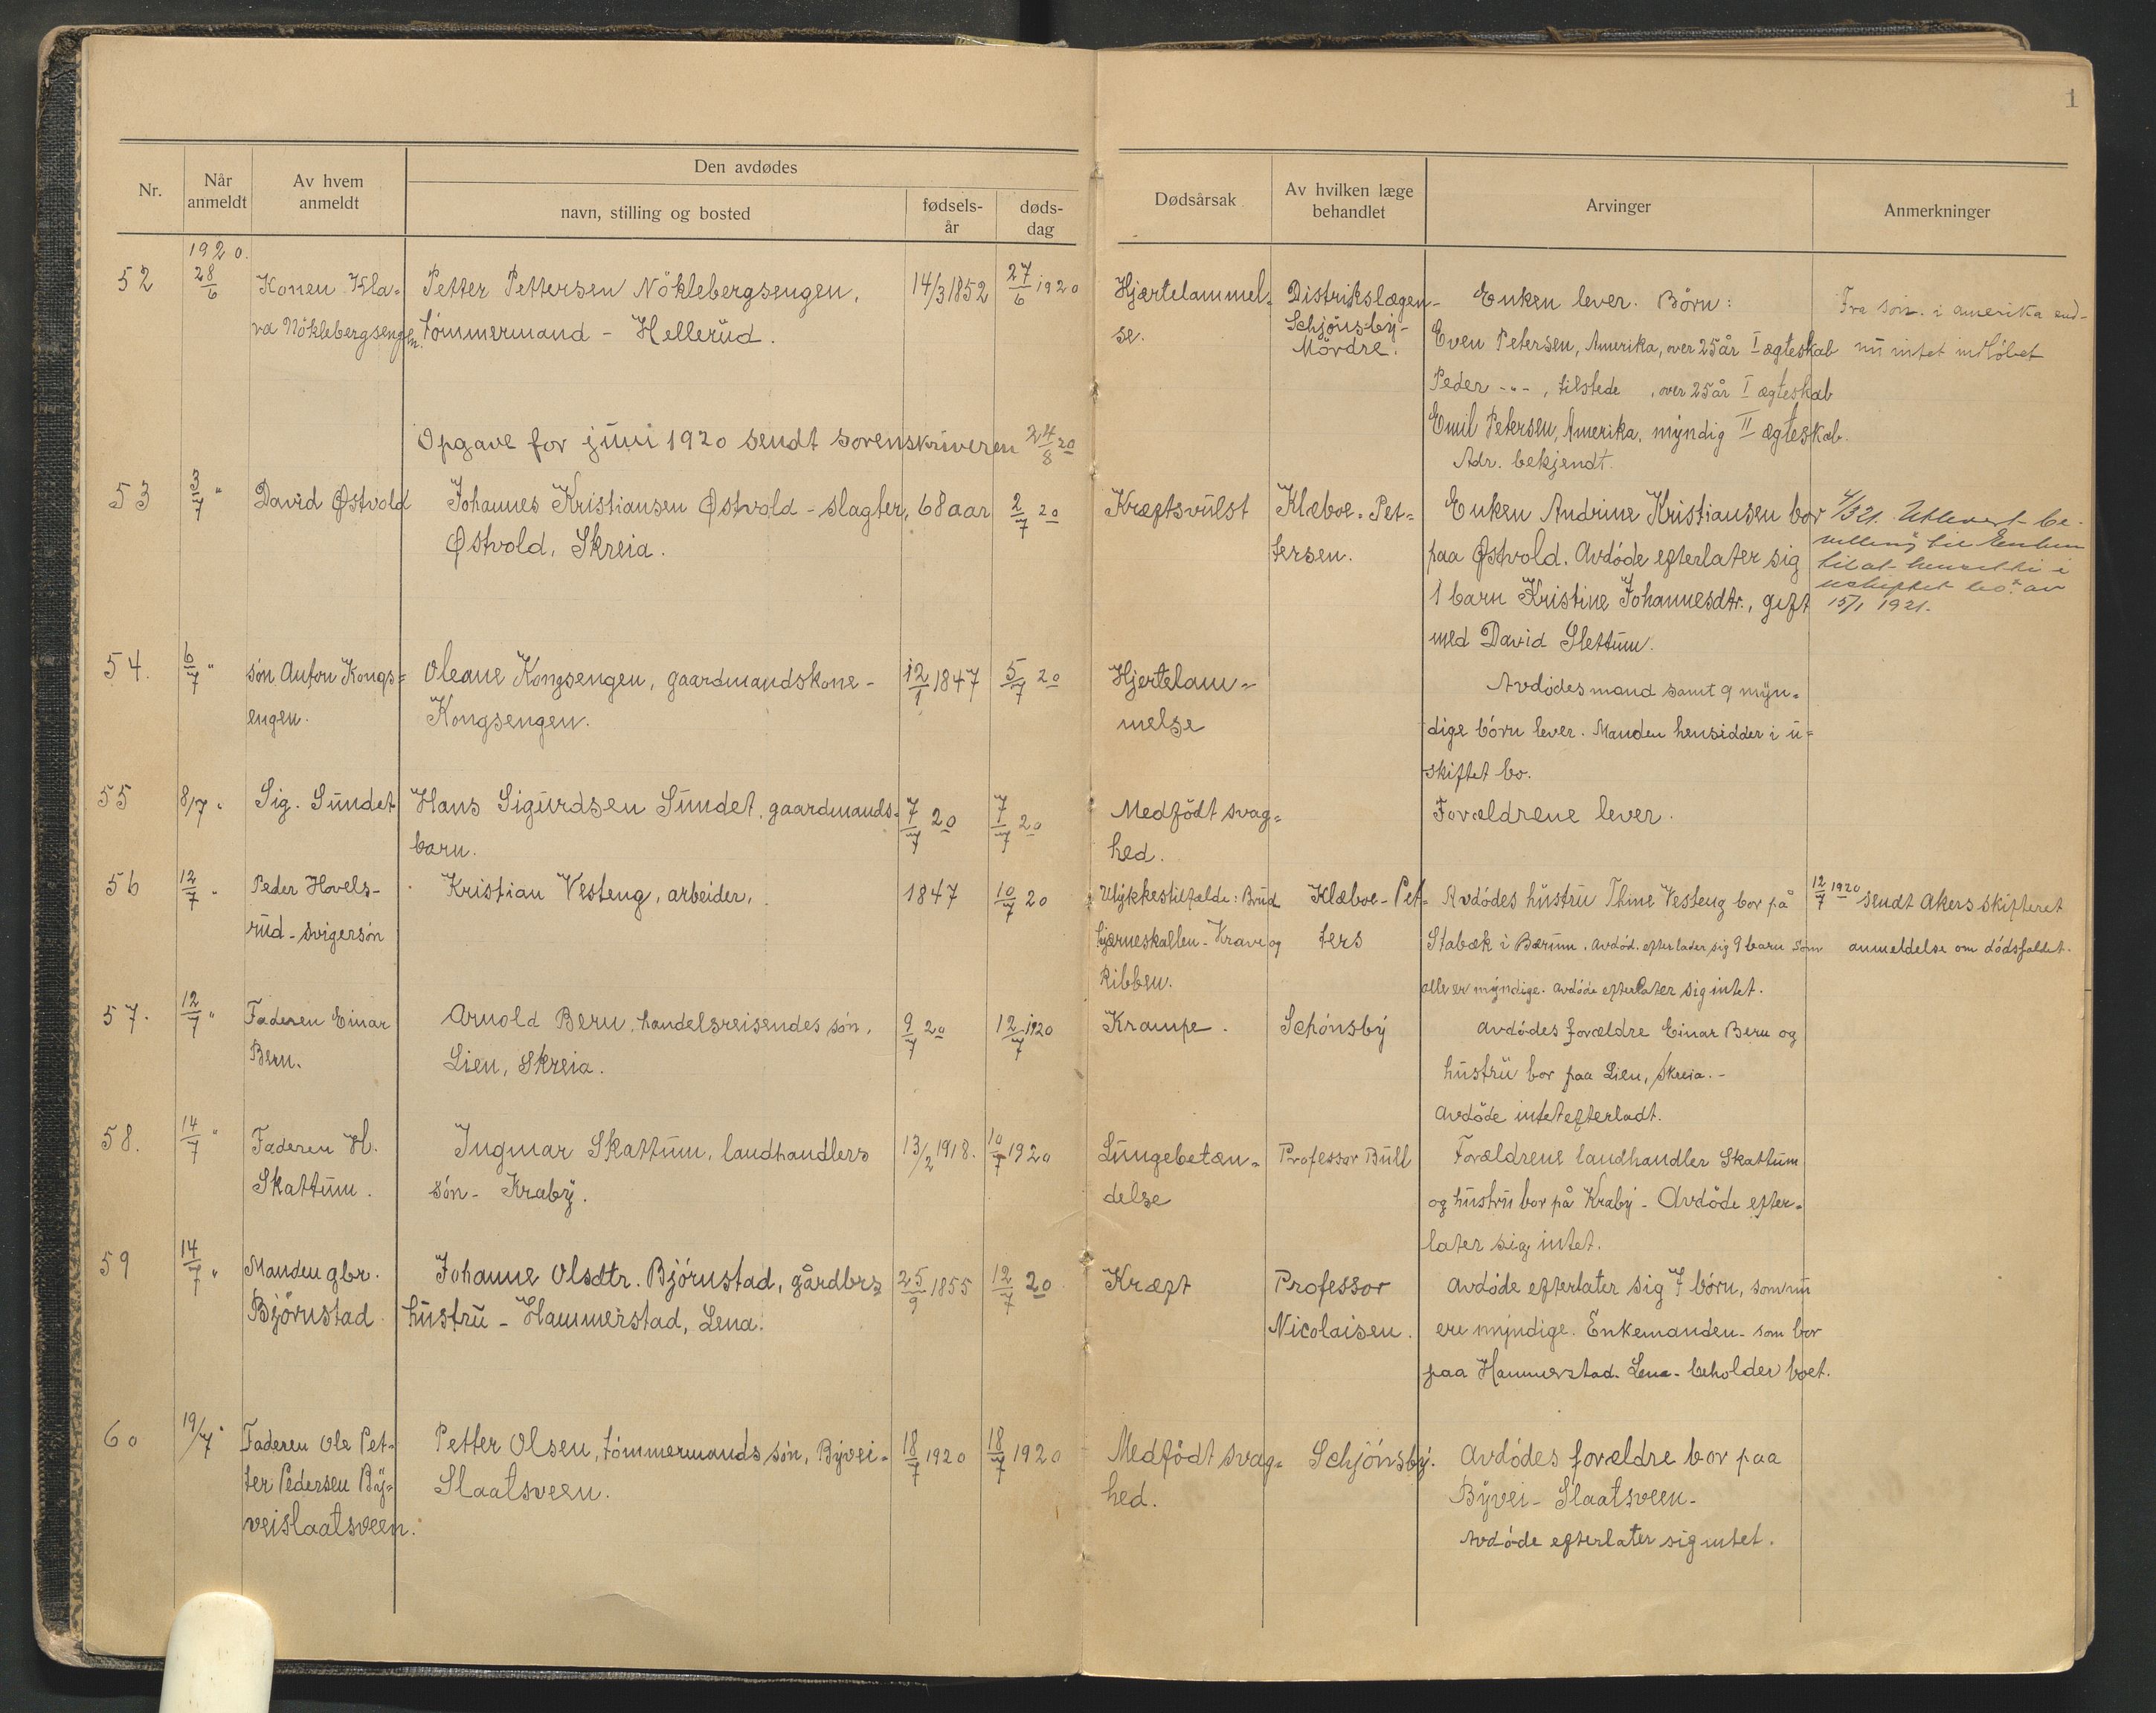 1
Nr.
Når anmeldt
Av hvem anmeldt
Den avdødes
navn, stilling og bosted
fødsels-år
døds-dag
Dødsårsak
Av hvilken læge behandlet
Arvinger
Anmerkninger
1920.
52
28/6
Konen Kla=
va Nöklebergsengen.
Petter Pettersen Nöklebergsengen,
tömmermand - Hellerud.
14/3 1852
27/6 1920
Hjertelammel=
se.
Distriktslægen-
Schjönsby-
Mördre.
Enken lever. Börn:
Even Petersen, Amerika, over 25 år I ægteskab
Peder -"-, tilstede, over 25 år I ægteskab
Emil Petersen, Amerika, myndig II ægteskab.
Adr. bekjendt.
Fra søn i amerika end-
nu intet indløbet
Opgave for juni 1920 sendt sorenskriveren 24/8 20
53
3/7 "
David Østvold
Johannes Kristiansen Østvold - slagter,
Østvold, Skreia.
68 aar
2/7 20
Kræftsvulst
Klæboe-Pet=
tersen.
Enken Andrine Kristiansen bor
paa Østvold. Avdöde efterlater sig
1 barn Kristine Johannesdtr., gift
med David Slettum.
4/3 21. Utlevert be-
villing til Enken
til at hensitte i
uskiftet bo av
15/1 1921.
54.
6/7 "
sön Anton Kongs=
engen.
Oleane Kongsengen, gaardmandskone -
Kongsengen.
12/1 1847
5/7 20
Hjertelam=
melse
Avdödes mand samt 9 myn=
dige börn lever. Manden hensidder i u=
skiftet bo.
55
8/7 "
Sig. Sundet
Hans Sigurdsen Sundet, gaardmands-
barn.
7/7 20
7/7 20
Medfödt svag=
hed.
Forældrene lever.
56
12/7 "
Peder Hovels-
rud - svigersön
Kristian Vesteng, arbeider,
1847
10/7 20
Ulykkestilfælde: Brud
hjerneskallen - Krave og
Ribben.
Klæboe-Pet=
ters
Avdödes hustru Thine Vesteng bor på
Stabæk i Bærum. Avdöd. efterlader sig 9 barn som
alle er myndige. Avdöde efterlater sig intet.
12/7 1920 sendt Akers skifteret
anmeldelse om dödsfaldet.
57.
12/7 "
Faderen Einar
Bern.
Arnold Bern, handelsreisendes sön,
Lien, Skreia.
9/7 20
12/7 1920
Krampe.
Schönsby
Avdödes forældre Einar Bern og
hustru bor paa Lien, Skreia.-
Avdöde intet efterladt.
58.
14/7 "
Faderen H.
Skattum.
Ingmar Skattum, landhandlers
sön - Kraby.
13/2 1918.
10/7 1920
Lungebetæn=
delse
Professor Bull
Forældrene landhandler Skattum
og hustru bor på Kraby - Avdöde efter=
later sig intet.
59
14/7 "
Manden gbr.
Björnstad
Johanne Olsdtr. Björnstad, gårdbrs
hustru - Hammerstad, Lena.
25/9 1855
12/7 20
Kræft
Professor
Nicolaisen.
Avdöde efterlater sig 7 börn, som nu
ere myndige. Enkemanden - som bor
paa Hammerstad. Lena - beholder boet.
60
19/7 "
Faderen Ole Pet-
ter Pedersen By=
veislaatsveen.
Petter Olsen, tömmermands sön, Byvei-
Slaatsveen.
18/7 1920
18/7 1920
Medfödt svag=
hed.
Schjönsby.
Avdödes forældre bor paa
Byvei- Slaatsveen-
Avdöde efterlater sig intet.